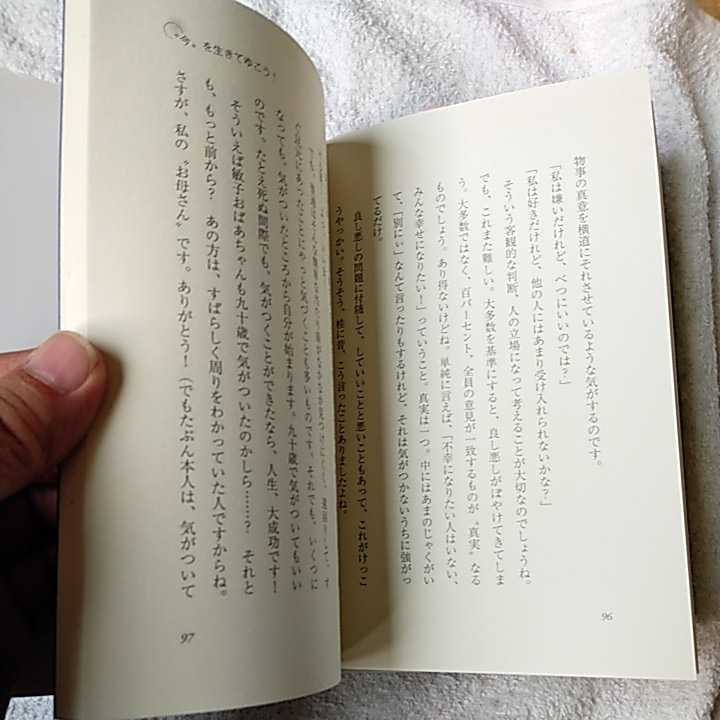 物事の真意を横道にそれさせているような気がするのです。
「私は嫌いだけれど、べつにいいのでは？」
「私は好きだけれど、他の人にはあまり受け入れられないかな？」
そういう客観的な判断、人の立場になって考えることが大切なのでしょうね。
でも、これまた難しい。大多数を基準にすると、良し悪しがぼやけてきてしま
う。大多数ではなく、百パーセント、全員の意見が一致するものが〝真実〟なる
ものでしょう。あり得ないけどね。単純に言えば、「不幸になりたい人はいない、
みんな幸せになりたい！」っていうこと。真実は一つ。中にはあまのじゃくがい
て、「別にぃ」なんて言ったりもするけれど、それは気がつかないうちに強がっ
てるだけ。
良し悪しの問題に付随して、していいことと悪いこともあって、これがけっこ
うやっかい。そうそう、桂に昔、こう言ったことありましたよね。
96
〝今〟を生きてゆこう！
なっても、気がついたところから自分が始まります。九十歳で気がついてもいい
のです。たとえ死ぬ間際でも、気がつくことができたなら、人生、大成功です！
そういえば敏子おばあちゃんも九十歳で気がついたのかしら……？　それと
も、もっと前から？　あの方は、すばらしく周りをわかっていた人ですからね。
さすが、私の〝お母さん〟です。ありがとう！（でもたぶん本人は、気がついて
97